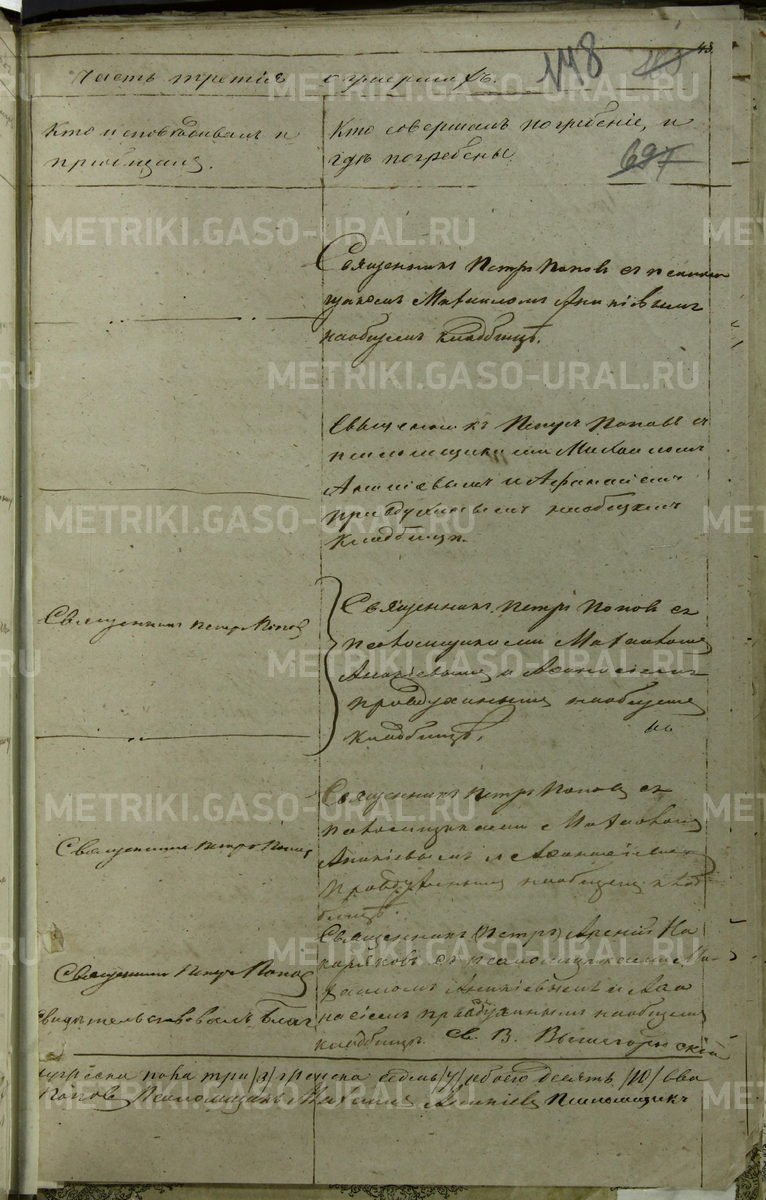 43.
148
Часть третія о умершихъ.
Кто исповѣдывалъ и
пріобщалъ.
Кто совершалъ погребеніе, и
гдѣ погребены
697
Священникъ Петръ Поповъ съ псаломщикомъ
Михаиломъ Ананіевымъ
на общемъ кладбищѣ.
Священникъ Петръ Поповъ съ
псаломщиками Михаиломъ
Ананіевымъ и Афанасіемъ
на общемъ
кладбищѣ.
Священникъ Петръ Поповъ
Священникъ Петръ Поповъ съ
псаломщиками Михаиломъ
Ананіевымъ и Афанасіемъ
на общемъ
кладбищѣ.
Священникъ Петръ Поповъ
Священникъ Петръ Поповъ съ
псаломщиками Михаиломъ
Ананіевымъ и Афанасіемъ
на общемъ клад-
бищѣ.
Священникъ Петръ Поповъ
Священникъ Петръ
съ псаломщиками Ми-
хаиломъ Ананіевымъ и Афа
насіемъ на общемъ
кладбищѣ.
Свидѣтельствовалъ Благ. Св. В.
пола три /3/ женска седмь /7/ обоего десять /10/
Поповъ Псаломщикъ Михаилъ Ананіевъ Псаломщикъ
METRIKI.GASO-URAL.RU